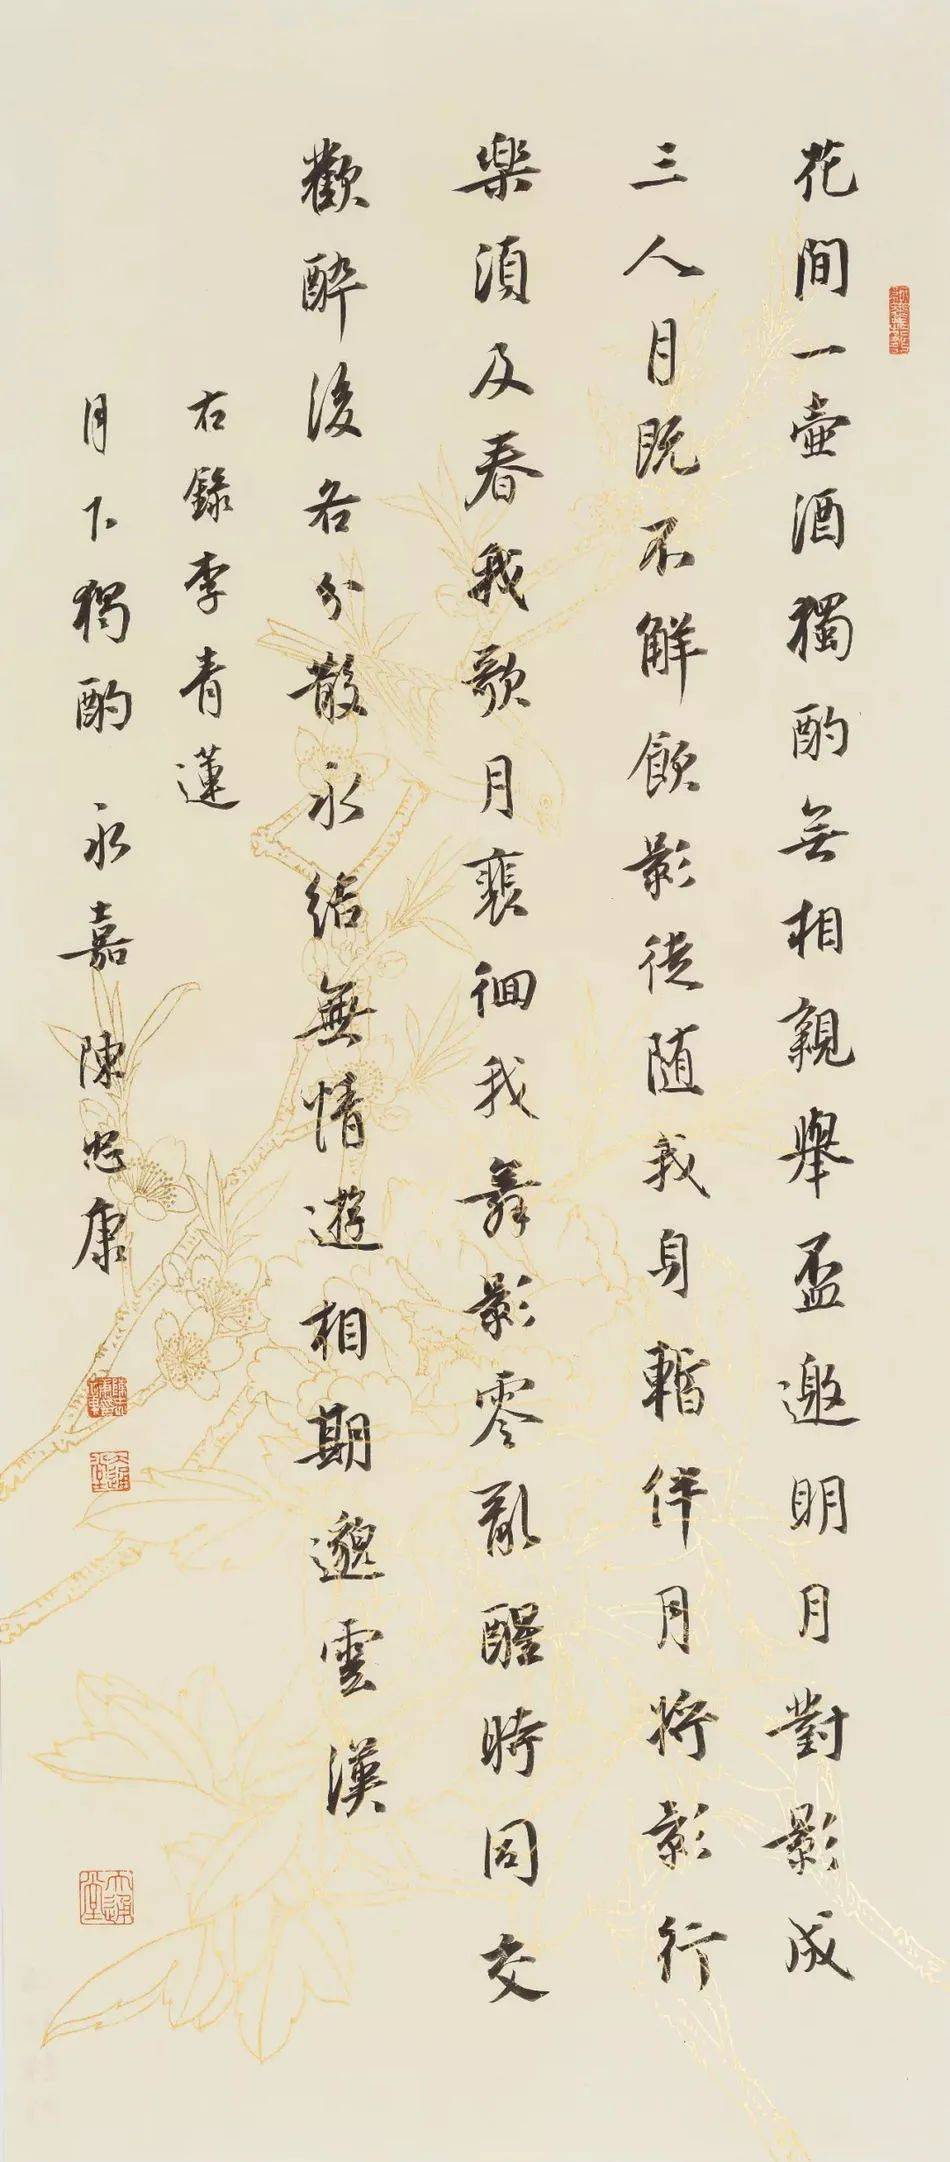 花間一壺酒獨酌無相親舉盃邀明月對影成
三人月既不解飲影徒随我身暫伴月將影行
樂須及春我歌月裴徊我舞影零亂醒時同交
歡醉後各分散永結無情遊相期邈雲漢
右錄李青蓮
月下獨酌 永嘉 陳忠康